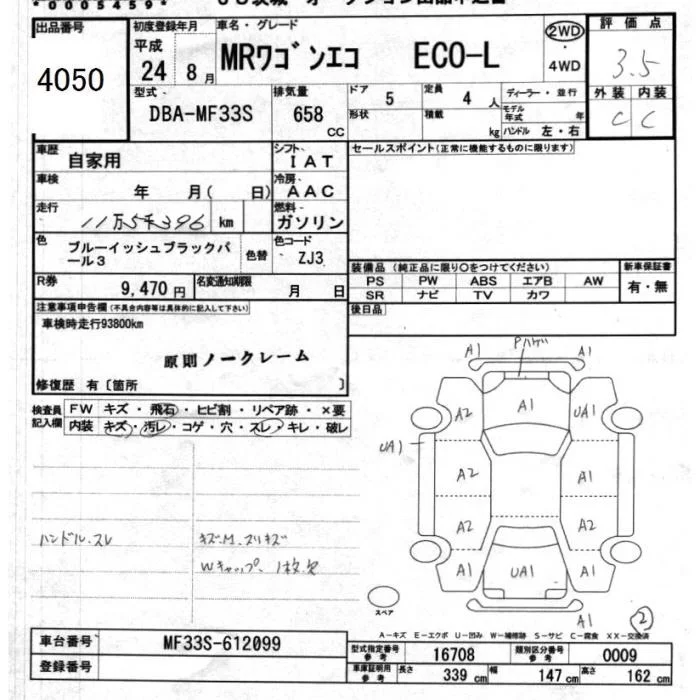 *0005459*
出品番号 4050
初度登録年月 平成 24 8月
車名・グレード MRワゴンエコ ECO-L
2WD ・ 4WD
評価点 3.5
型式 DBA-MF33S
排気量 658 CC
ドア 5 定員 4 人
形状 積載 kg
ディーラー・並行
モデル年式 年
ハンドル 左・右
外装 内装
C C
車歴 自家用
シフト IAT
セールスポイント(正常に機能するものに限ります)
車検 年 月( 日)
冷房 AAC
走行 11万5千396 km
燃料 ガソリン
色 ブルーイッシュブラックパール3
色替
色コード ZJ3
R券 9,470円
名変通知期限 月 日
装備品(純正品に限り○をつけてください)
新車保証書
PS PW ABS エアB AW
SR ナビ TV カワ
有・無
後日品
注意事項申告欄(不具合内容等は具体的に記入して下さい)
車検時走行93800km
原則ノークレーム
修復歴 有〔箇所 〕
検査員記入欄
FW キズ・飛石・ヒビ割・リペア跡・×要
内装 キズ・汚レ・コゲ・穴・スレ・キレ・破レ
ハンドル.スレ
キズ.M.スリキズ
Wキャップ、1枚欠
A1 Pハゲ A1
A2 A1 UA1
UA1 A2 A1
A2 A2
A1 UA1 A1
A1 ②
スペア
A-キズ E-エクボ U-凹み W-補修跡 S-サビ C-腐食 XX-交換済
車台番号 MF33S-612099
登録番号
型式指定番号 参考 16708
類別区分番号 参考 0009
車庫証明用 参考 長さ 339 cm 幅 147 cm 高さ 162 cm